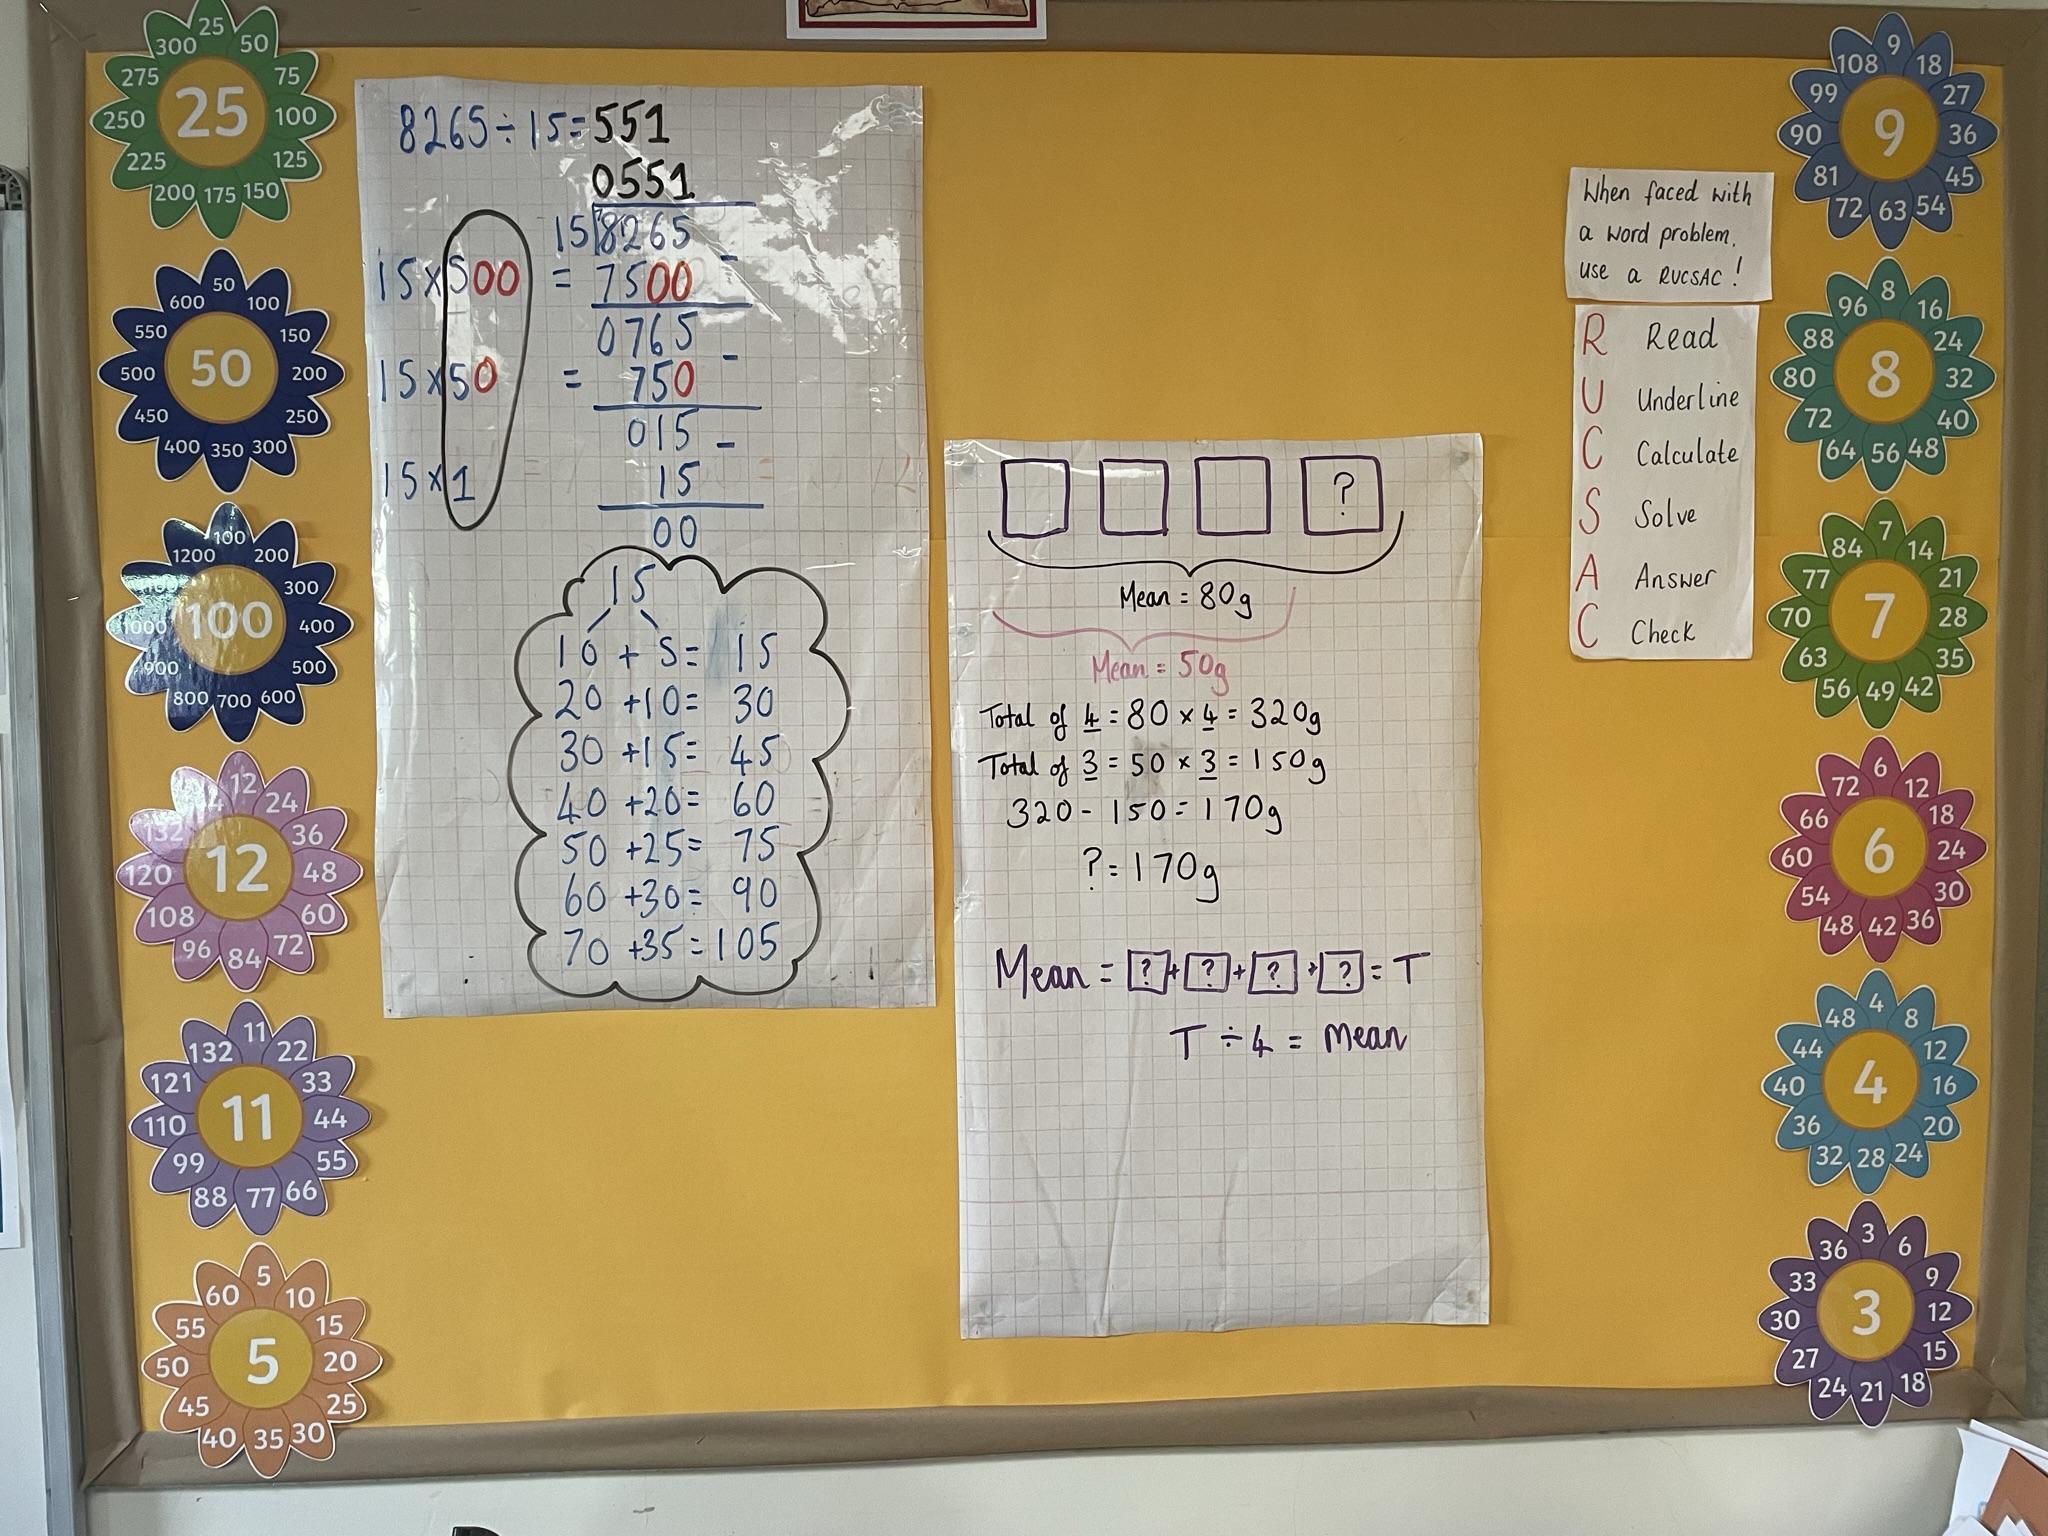 25
25
50
75
100
125
150
175
200
225
250
275
300
50
50
100
150
200
250
300
350
400
450
500
550
600
100
100
200
300
400
500
600
700
800
900
1000
1200
12
12
24
36
48
60
72
84
96
108
120
132
11
11
22
33
44
55
66
77
88
99
110
121
132
5
5
10
15
20
25
30
35
40
45
50
55
60
8265÷15=551
0551
15 8265 -
15×500 = 7500
0765 -
15×50 = 750
015 -
15×1 15
00
15
10 + 5= 15
20 +10= 30
30 +15= 45
40 +20= 60
50 +25= 75
60 +30= 90
70 +35=105
?
Mean = 80g
Mean = 50g
Total of 4 = 80 × 4 = 320g
Total of 3 = 50 × 3 = 150g
320 - 150 = 170g
? = 170g
Mean = ? + ? + ? + ? = T
T ÷ 4 = Mean
When faced with
a word problem,
use a RUCSAC!
R Read
U Underline
C Calculate
S Solve
A Answer
C Check
9
9
18
27
36
45
54
63
72
81
90
99
108
8
8
16
24
32
40
48
56
64
72
80
88
96
7
7
14
21
28
35
42
49
56
63
70
77
84
6
6
12
18
24
30
36
42
48
54
60
66
72
4
4
8
12
16
20
24
28
32
36
40
44
48
3
3
6
9
12
15
18
21
24
27
30
33
36